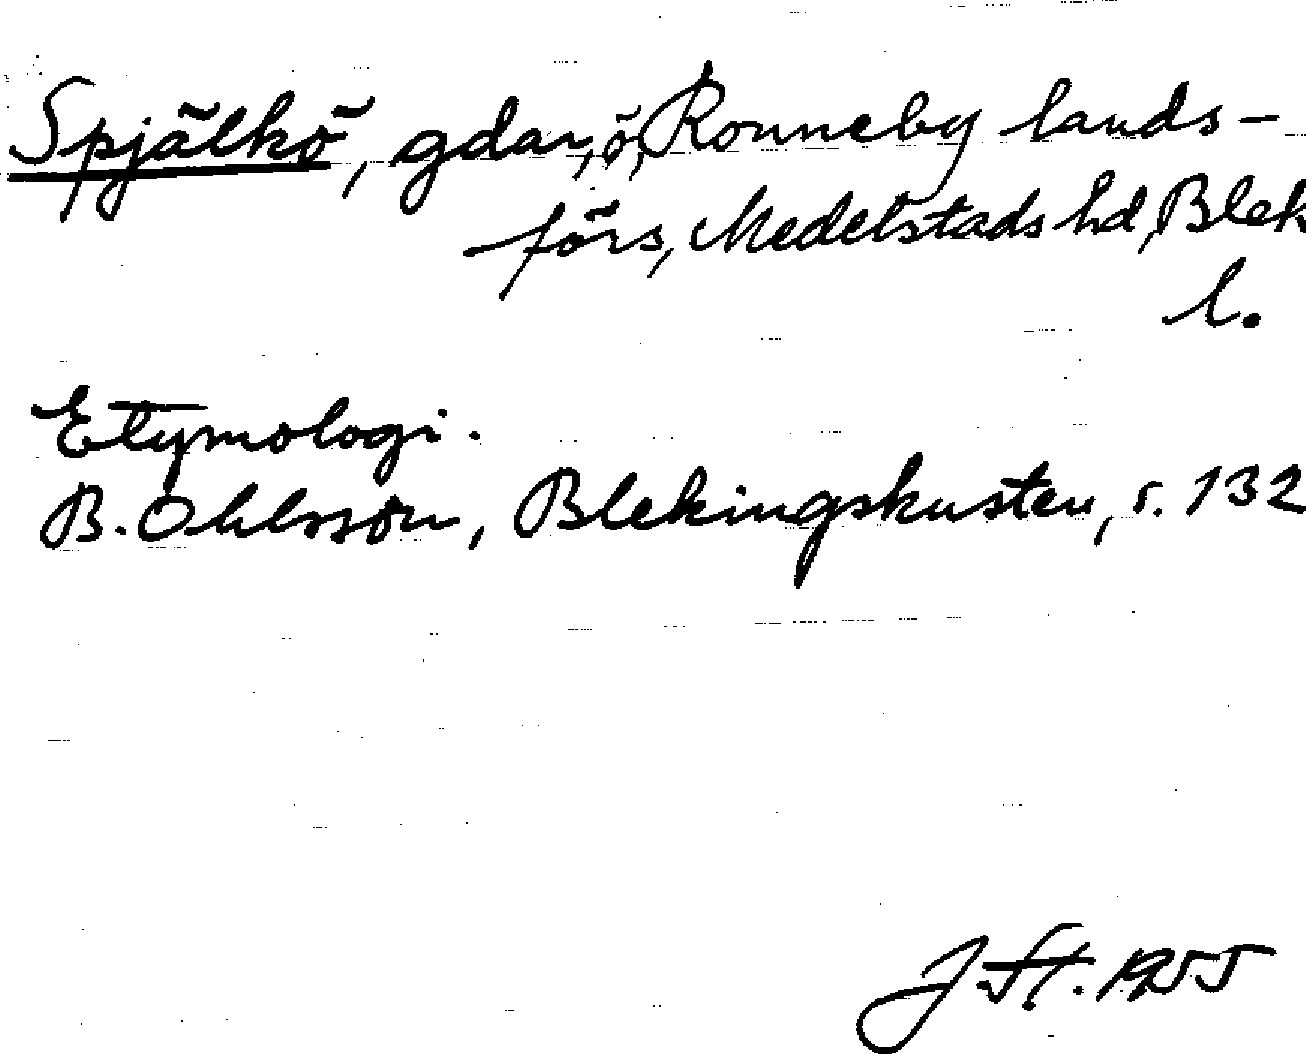 Spjälkö, gdar, ö, Ronneby lands-
förs, Medelstads hd, Blek
l.
Etymologi.
B. Ohlsson, Blekingskusten, s. 132
J St. 1955